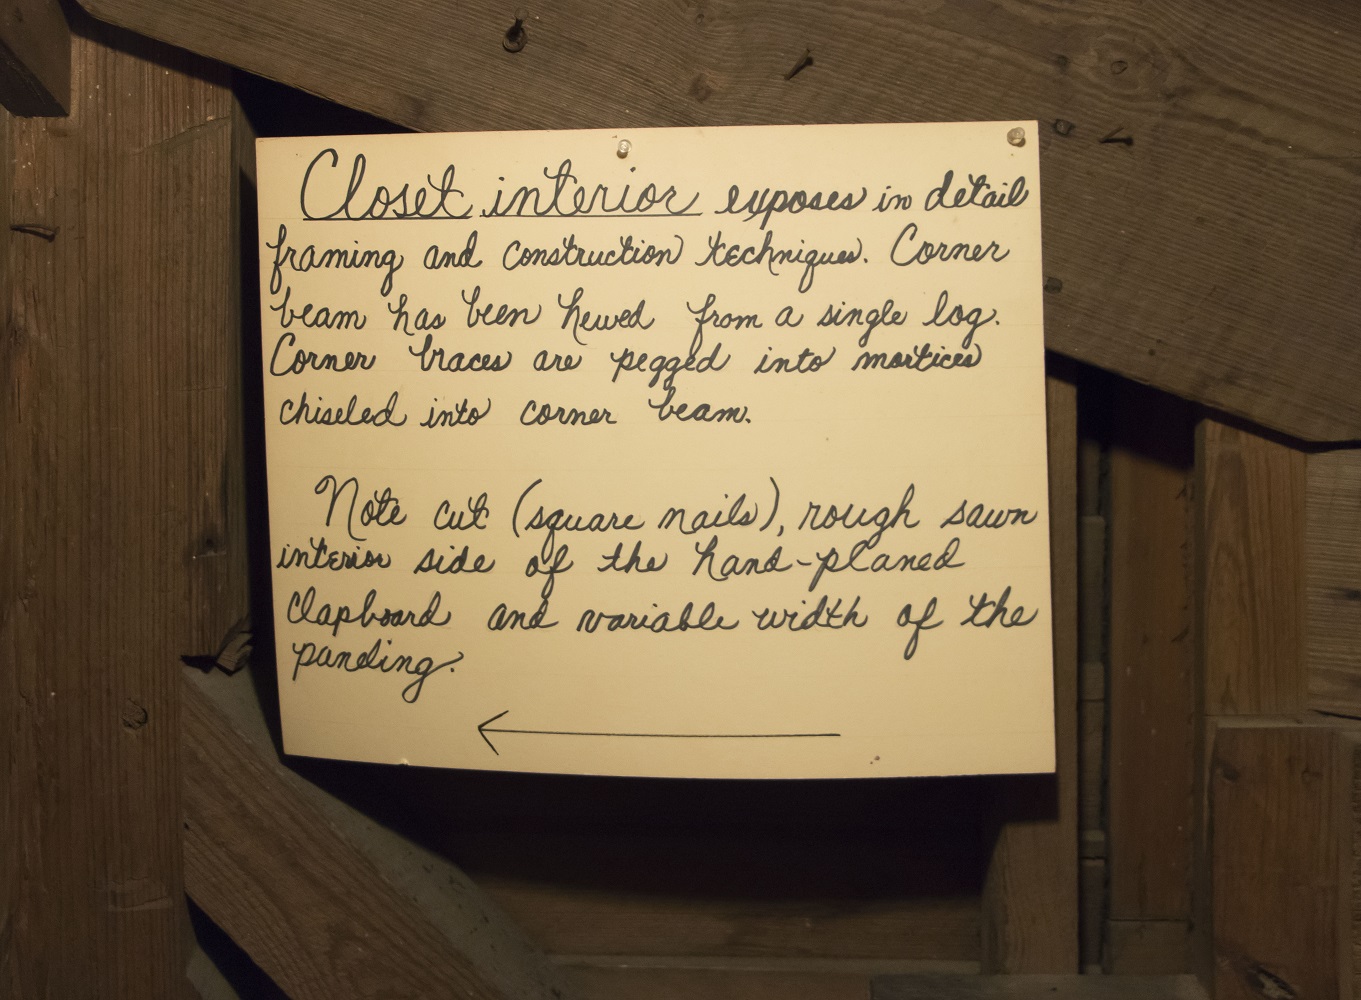 Closet interior exposes in detail
framing and construction techniques. Corner
beam has been hewed from a single log.
Corner braces are pegged into mortices
chiseled into corner beam.
Note cut (square nails), rough sawn
interior side of the hand-planed
clapboard and variable width of the
paneling.